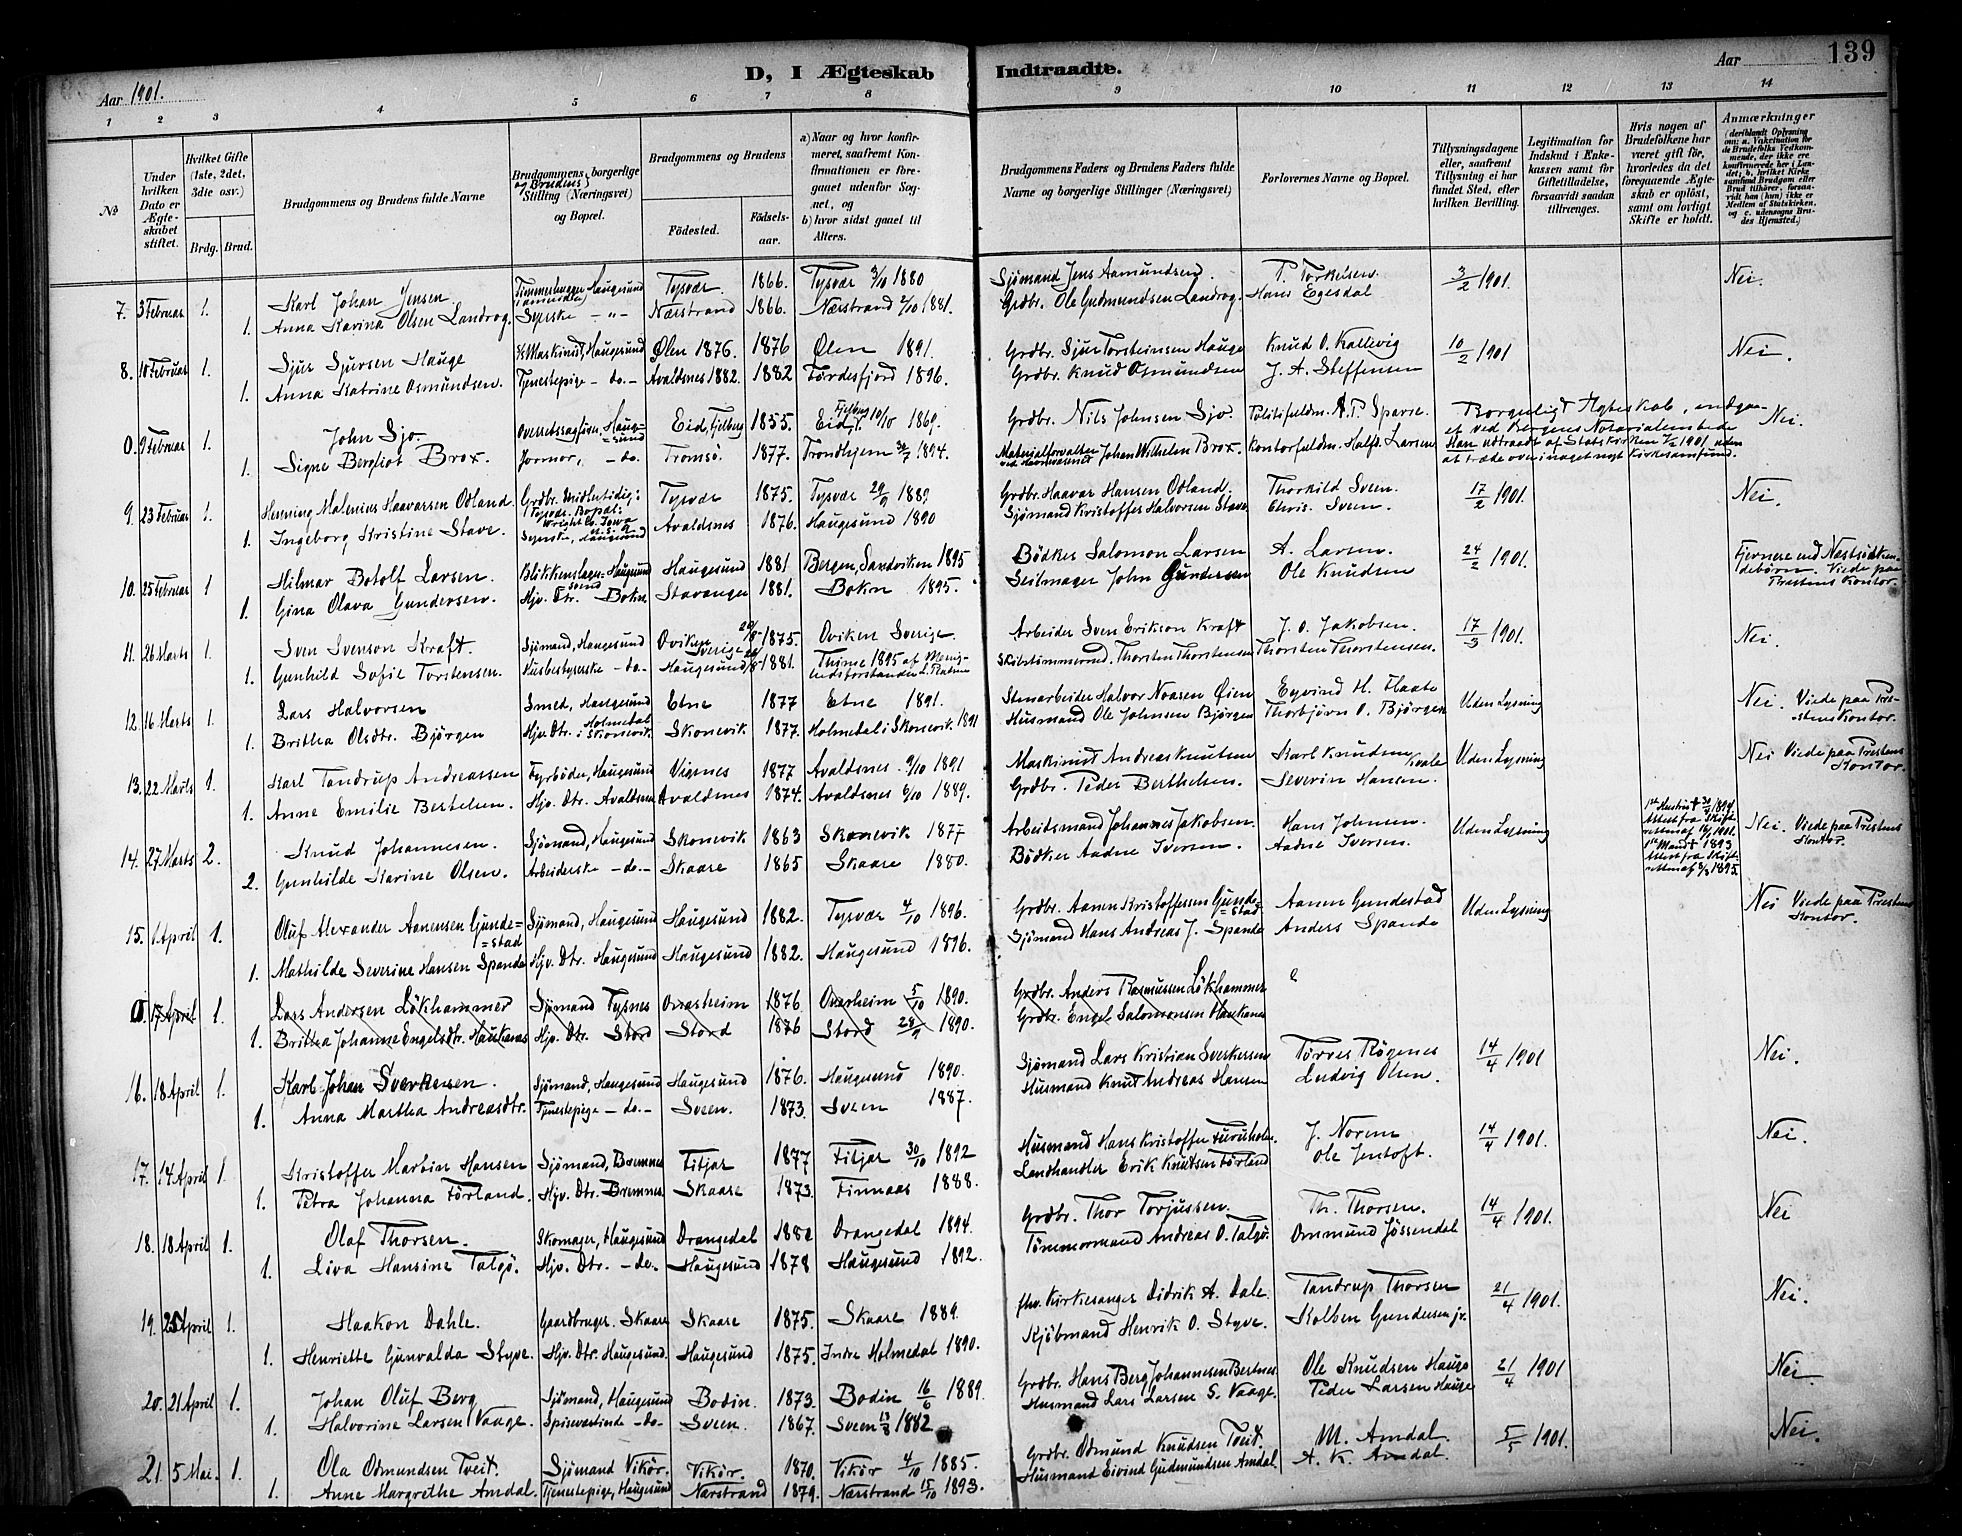 D, I Ægteskab Indtraadte.
Aar 1901. Aar 139
1 2 3 4 5 6 7 8 9 10 11 12 13 14
№
Under hvilken Dato er Ægteskabet stiftet.
Hvilket Gifte (1ste, 2det, 3die osv.)
Brdg. Brud.
Brudgommens og Brudens fulde Navne
Brudgommens og Brudens borgerlige Stilling (Næringsvei) og Bopæl.
Brudgommens og Brudens
Födested. Födsels-aar.
a) Naar og hvor konfirmeret, saafremt Konfirmationen er foregaaet udenfor Sognet, og
b) hvor sidst gaaet til Alters.
Brudgommens Faders og Brudens Faders fulde Navne og borgerlige Stillinger (Næringsvei)
Forlovernes Navne og Bopæl.
Tillysningsdagene eller, saafremt Tillysning ei har fundet Sted, efter hvilken Bevilling.
Legitimation for Indskud i Enkekassen samt for Giftetilladelse, forsaavidt saadan tiltrænges.
Hvis nogen af Brudefolkene har været gift før, hvorledes da det foregaaende Ægteskab er opløst, samt om lovligt Skifte er holdt.
Anmærkninger
(deriblandt Oplysning om: a. Vakcination for de Brudefolks Vedkommende, der ikke ere konfirmerede her i Landet; b. hvilket Kirkesamfund Brudgom eller Brud tilhører, forsaavidt han (hun) ikke er Medlem af Statskirken, og c. udensogns Brudes Hjemsted.)
7. 3 Februar 1. Karl Johan Jensen Haugesund Tysvær. 1866. Tysvær 3/10 1880 Sjömand Jens Aamundsen. T. Torkelsen. 3/2 1901. Nei.
1. Anna Karina Olsen Landrog. Syerske -"- Nærstrand 1866. Nærstrand 2/10 1881. Grdbr. Ole Gudmundsen Landrog. Hans Egesdal
8. 10 Februar 1. Sjur Sjursen Hauge Maskinist, Haugesund Ølen 1876. 1876 Ølen 1891. Grdbr. Sjur Torsteinsen Hauge Knud O. Kallevig 10/2 1901 Nei.
1. Anna Katrine Osmundsen. Tjenestepige - do.- Avaldsnes 1882. 1882 Tordesfjord 1896. Grdbr. Knud Osmundsen J. A. Steffensen
0. 9 Februar 1. John Sjo. Overretssagfører, Haugesund Eid, Fjelberg 1855. Eid, Fjelberg 10/10 1869. Grdbr. Nils Johnsen Sjo. Politifuldm. A. P. Sparre. Borgerligt Ægteskab, indgaaet ved Bergens Notarialembede Nei.
1. Signe Bergliot Brox. Jormor, - do. Tromsö. 1877. Trondhjem 1894. Materialforvalter Johan Wilhelm Brox. Kontorfuldm. Halfd. Larsen Han udtraadt af Statskirken 1901 uden at træde over i noget nyt Kirkesamfund.
9. 23 Februar 1. Henning Malenius Haavarsen Odland Grdbr. Midlertidig: Tysvær. Bopæl: Wright Co. Iowa U.S.A. Tysvær 1875. Tysvær 29/9 1889 Grdbr. Haavar Hansen Odland. Thorkild Sveen. 17/2 1901. Nei.
1. Ingeborg Kristine Stave. Syerske, Haugesund Avaldsnes 1876. Haugesund 1890 Sjømand Kristoffer Halvorsen Stave. Chris. Sveen.
10. 25 Februar 1 Hilmar Botolf Larsen. Blikkenslager, Haugesund Haugesund 1881 Bergen, Sandviken 1895 Bödker Salomon Larsen A. Larsen. 24/2 1901. Fjernere end Næstsödskendebørn. Viede paa Prestens Kontor.
1. Gina Olava Gundersen. Hjv. Dtr. Bokn Stavanger 1881. Bokn 1895. Seilmager John Gundersen Ole Knudsen
11. 26 Marts 1. Sven Svenson Kraft. Sjömand, Haugesund Oviken Sverige 1875. Oviken Sverige. Arbeider Sven Erikson Kraft J. O. Jakobsen. 17/3 1901. Nei.
1. Gunhild Sofie Torstensen. Husbestyrerske - do.- Haugesund 1881. Thime 1895 af Menighedsforstander Skibstömmermd. Thorsten Thorstensen Thorsten Thorstensen.
12. 16 Marts 1. Lars Halvorsen Smed, Haugesund Etne 1877 Etne 1891. Stenarbeider Halvor Noasen Øien Eyvind H. Flaate Uden Lysning Nei. Viede paa Prestens Kontor.
1. Britha Olsdtr. Bjørgen Hjv. Dtr. Holmedal i Skonevik. Skonevik 1877. Holmedal i Skonevik 1891 Husmand Ole Johnsen Bjørgen Thorbjörn O. Bjørgen
13. 22 Marts 1. Karl Tandrup Andreassen Fyrböder, Haugesund Vigsnes 1877 Avaldsnes 9/10 1891 Maskinist Andreas Knutsen Karl Knudsen Uden Lysning Nei Viede paa Prestens Kontor.
1. Anne Emilie Bertelsen. Hjv. Dtr. Avaldsnes Avaldsnes 1874. Avaldsnes 6/10 1889. Grdbr. Peder Berthelsen. Severin Hansen.
14. 27 Marts 2. Knud Johannesen. Sjömand, Haugesund Skonevik 1863 Skonevik 1877 Arbeidsmand Johannes Jakobsen. Hans Johnsen. Uden Lysning 1st Hustru † 1899. Attest fra Skifteretten af 1901. Nei. Viede paa Prestens Kontor.
2. Gunhilde Karine Olsen. Arbeiderske - do.- Skaare 1865 Skaare 1880. Bödker Aadne Iversen. Aadne Iversen. 1st Mand † 1893 Attest fra Skifteretten af 1895.
15. 1 April 1. Oluf Alexander Aanensen Gundestad Sjömand, Haugesund Haugesund 1882. Tysvær 4/10 1896. Grdbr. Aanen Kristoffersen Gundestad Aanen Gundestad Uden Lysning Nei Viede paa Prestens Kontor.
1. Mathilde Severine Hansen Spande Hjv. Dtr. Haugesund Haugesund 1882. Haugesund 1896. Sjömand Hans Andreas J. Spande Anders Spande
0. 17 April 1. Lars Andersen Lökhammer Sjömand Tysnes Onarheim 1876 Onarheim 5/10 1890. Grdbr. Anders Rasmussen Lökhammer
1. Britha Johanne Engelsdtr. Haukanes Hjv. Dtr. Stord Stord 1876 Stord 28/9 1890. Grdbr. Engel Salomonsen Haukanes
16. 18 April 1. Karl Johan Sverkesen. Sjömand, Haugesund Haugesund 1876. Haugesund 1890. Sjömand Lars Kristian Sverkersen Törres Rögenes 14/4 1901 Nei.
1. Anna Martha Andreasdtr. Tjenestepige - do.- Sveen. 1873. Sveen 1887. Husmand Knut Andreas Hansen Ludvig Olsen.
17. 14 April 1. Kristoffer Martin Hansen Sjömand, Bremnes Fitjar 1877 Fitjar 30/10 1892 Husmand Hans Kristoffer Furuholm. J. Norem 14/4 1901. Nei.
1. Petra Johanna Förland. Hjv. Dtr. Bremnes Skaare 1873. Finnaas 1888. Landhandler Erik Knutsen Förland Ole Jentoft.
18. 18 April 1. Olaf Thorsen. Skomager, Haugesund Drangedal 1880 Drangedal 1894. Grdbr. Thor Torjussen. Th. Thorsen. 14/4 1901. Nei
1. Liva Hansine Talgö. Hjv. Dtr. - do.- Haugesund 1878 Haugesund 1892. Tömmermand Andreas O. Talgö. Ommund Jössendal
19. 25 April 1. Haakon Dahle. Gaardbruger. Skaare Skaare 1875. Skaare 1889. fhv. Kirkesanger Didrik A. Dale. Tandrup Thorsen 21/4 1901. Nei.
1. Henriette Gunvalda Styve. Hjv. Dtr. Haugesund. Haugesund 1875. Indre Holmedal 1890. Kjöbmand Henrik O. Styve. Kolben Gundersen jr.
20. 21 April 1. Johan Oluf Berg Sjömand, Haugesund Bodin. 1873. Bodin 16/6 1889. Grdbr. Hans Berg Johannesen Bertnes Ole Knudsen Hauge 21/4 1901 Nei.
1. Halvorine Larsen Vaage. Spisevertinde - do- Sveen. 1867. Sveen 13/8 1882 Husmand Lars Larsen S. Vaage. Peder Larsen Hauge
21. 5 Mai. 1. Ola Odmundsen Tveit. Sjömand Vikör. Vikör. 1870. Vikör 4/10 1885. Grdbr. Odmund Knudsen Tveit. M. Amdal. 5/5 1901. Nei.
1. Anne Margrethe Amdal. Tjenestepige, Haugesund Nærstrand 1879. Nærstrand 15/10 1893. Husmand Eivind Gudmundsen Amdal A. K. Amdal.